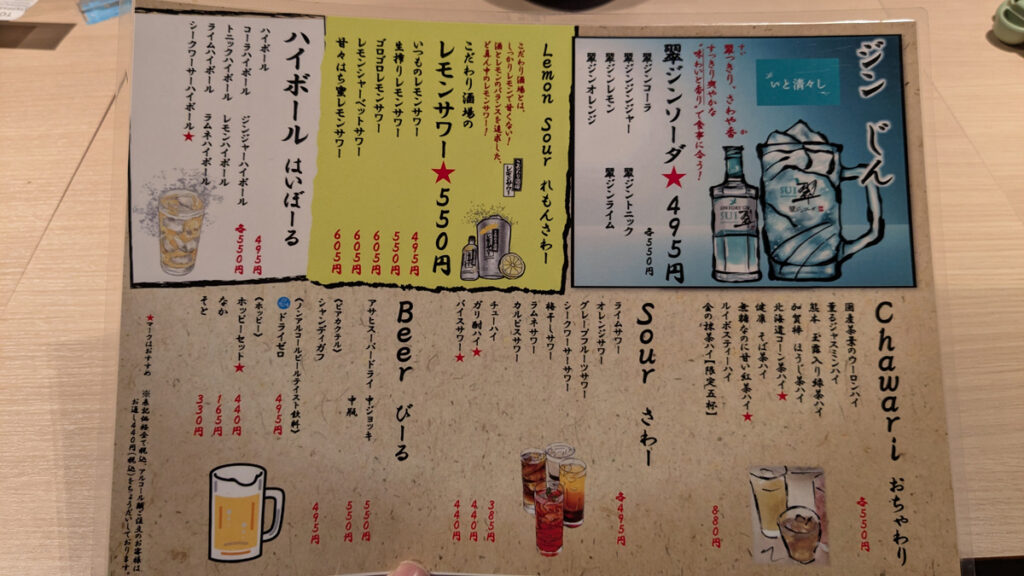 ジン じん
いと清々し
翠 すっきり、さわや香
すっきり爽やかな
“味わいと香り”で食事に合う!
翠ジンソーダ★495円
翠ジンコーラ
翠ジンジンジャー
翠ジンレモン
翠ジンオレンジ
翠ジントニック
翠ジンライム
各550円
SUI 翠
翠ジンソーダ
SUI 翠
Lemon Sour れもんさわー
こだわり酒場とは、
しっかりレモンで甘くない!
酒とレモンのバランスを追求した、
ど真ん中のレモンサワー!
こだわり酒場の
レモンサワー★550円
こだわり酒場の
レモンサワー
いつものレモンサワー 495円
生搾りレモンサワー 550円
ゴロゴロレモンサワー 605円
レモンシャーベットサワー 605円
甘々はち蜜レモンサワー 605円
ハイボール はいぼーる
ハイボール 495円
コーラハイボール
ジンジャーハイボール
トニックハイボール
レモンハイボール
ライムハイボール
ラムネハイボール
シークワーサーハイボール★
各550円
Chawari おちゃわり
各550円
国産茶葉のウーロンハイ
薫るジャスミンハイ
熊本 玉露入り緑茶ハイ
加賀棒 ほうじ茶ハイ
北海道コーン茶ハイ★
健康 そば茶ハイ
無糖なのに甘い紅茶ハイ★
ルイボスティーハイ
金の抹茶ハイ【限定五杯】 880円
Sour さわー
ライムサワー
オレンジサワー
グレープフルーツサワー
シークワーサーサワー
梅干しサワー
ラムネサワー
カルピスサワー
各495円
チューハイ 385円
ガリ酎ハイ★ 440円
バイスサワー★ 440円
Beer びーる
アサヒスーパードライ 中ジョッキ 550円
中瓶 550円
(ビアカクテル)
シャンディガフ 495円
(ノンアルコールビールテイスト飲料)
ドライゼロ 495円
(ホッピー)
ホッピーセット★ 440円
なか 165円
そと 330円
★マークはおすすめ
※表記価格全て税込、アルコール類ご注文のお客様は、
お通し440円(税込)をちょうだいしております。